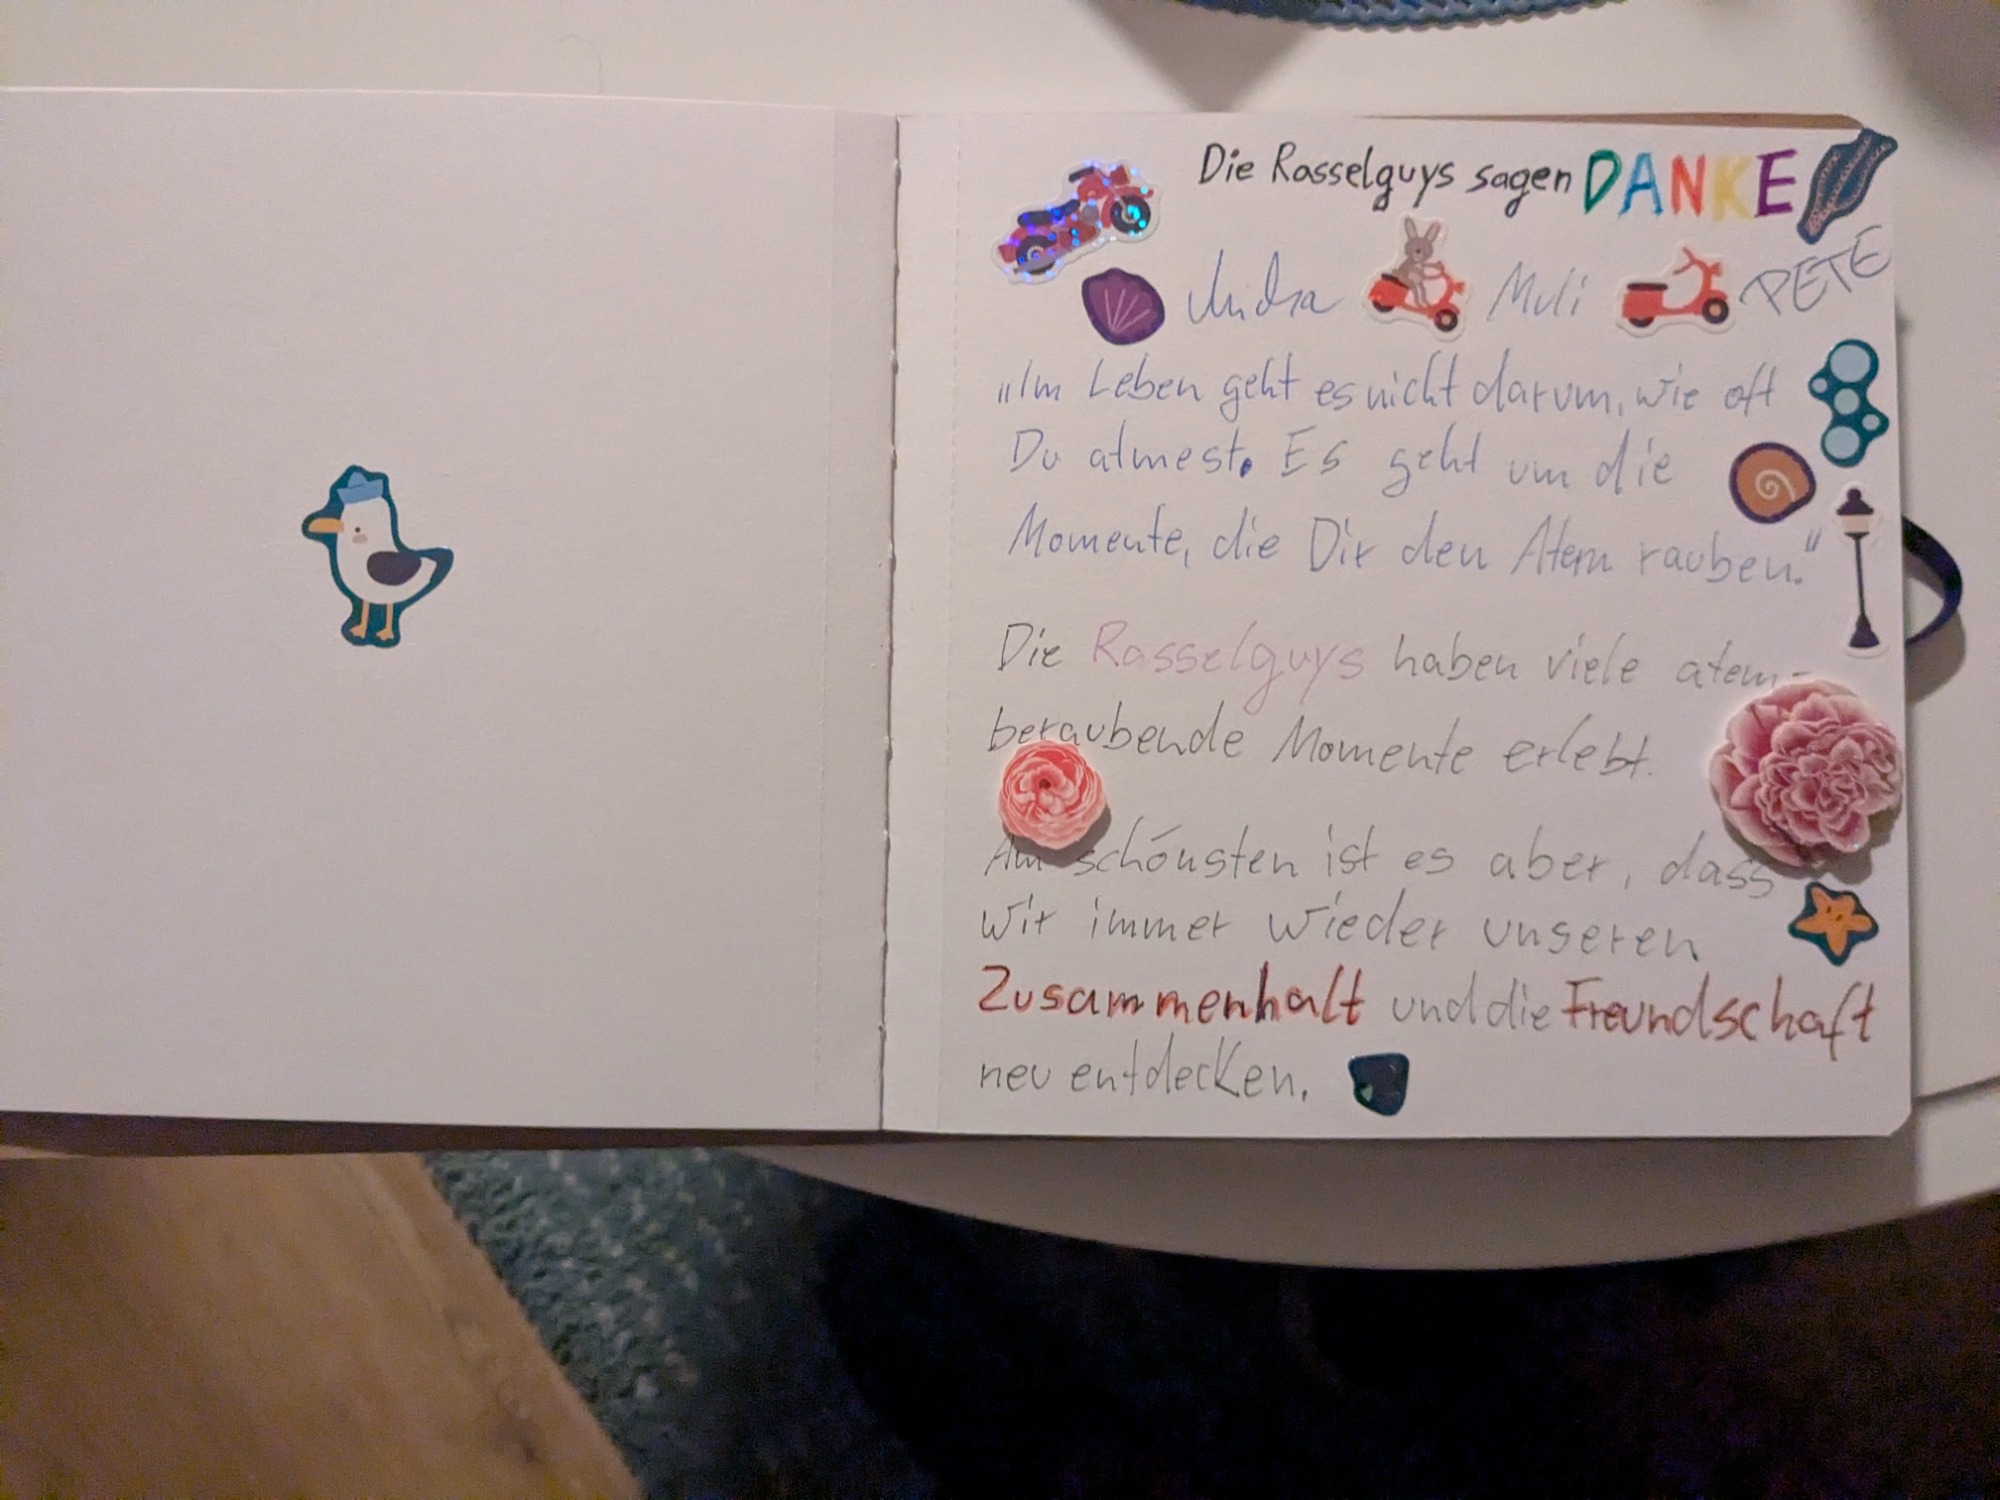 Die Rasselguys sagen DANKE
Muli PETE
„Im Leben geht es nicht darum, wie oft
Du atmest. Es geht um die
Momente, die Dir den Atem rauben."
Die Rasselguys haben viele atem-
beraubende Momente erlebt.
Am schönsten ist es aber, dass
wir immer wieder unseren
Zusammenhalt und die Freundschaft
neu entdecken.